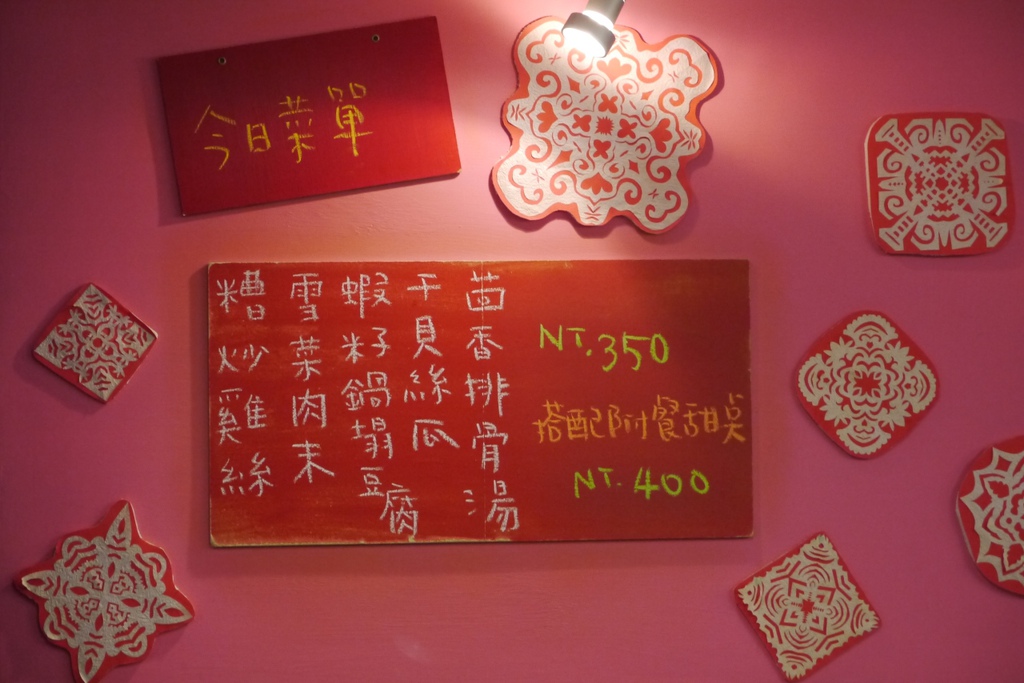 今日菜單
茴香排骨湯
干貝絲瓜
蝦籽鍋塌豆腐
雪菜肉末
糟炒雞絲
NT.350
搭配附餐甜點
NT.400